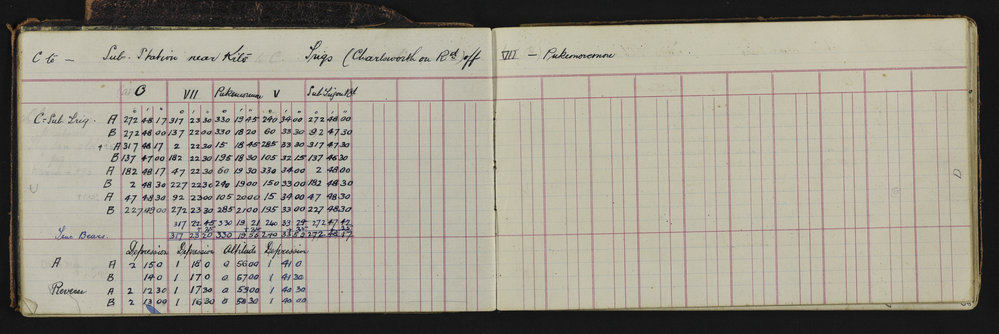 C to - Sub. Station near Kits Trigs (Charlsworth on Rd) off VII - Pukemoremou
O VII Pukemoremou V Sub Trig on Rd
° ' " ° ' " ° ' " ° ' " ° ' "
C-Sub Trig. A 272 48 17 317 23 30 330 19 45 240 34 00 272 48 00
B 272 48 00 137 22 00 330 18 20 60 33 30 92 47 30
+ A 317 48 17 2 22 30 15 18 45 285 33 30 317 47 30
B 137 47 00 182 22 30 195 18 30 105 32 15 137 46 30
A 182 48 17 47 22 30 60 19 30 330 34 00 2 48 00
B 2 48 30 227 22 30 240 19 00 150 33 00 182 48 30
A 47 48 30 92 23 00 105 20 00 15 34 00 47 48 30
B 227 49 00 272 23 30 285 21 00 195 33 00 227 48 30
317 22 45 330 19 21 240 33 24 272 47 42
True Bears. 317 23 20 330 19 56 240 272 48 17
Depression Depression Altitude Depression
A A 2 15 0 1 16 0 0 56 00 1 41 0
B 14 0 1 17 0 0 57 00 1 41 30
Reverse A 2 12 30 1 17 30 0 59 00 1 40 30
B 2 13 00 1 16 30 0 58 30 1 40 00